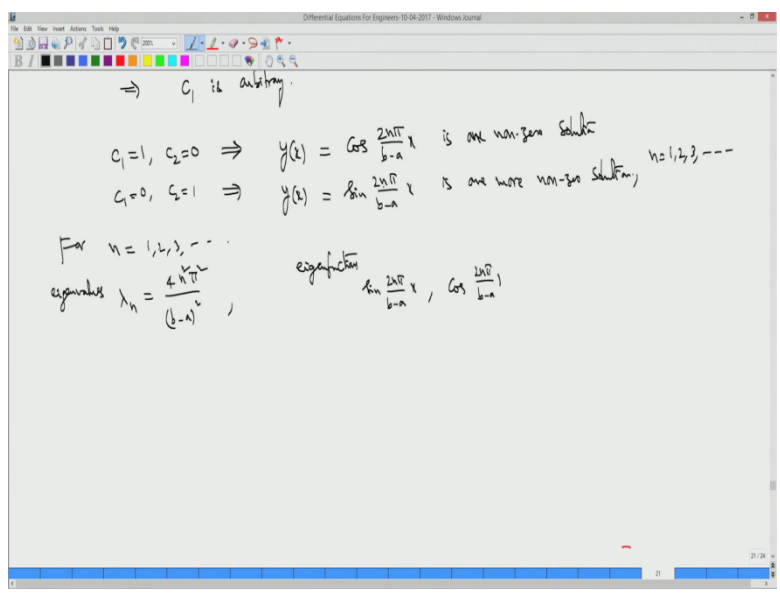 Differential Equations For Engineers-10-04-2017 - Windows Journal
File Edit View Insert Actions Tools Help
200%
B I
⇒ C₁ is arbitrary.
C₁=1, C₂=0 ⇒ y(x) = Cos 2nπ/(b-a) x is one non-zero Solution
C₁=0, C₂=1 ⇒ y(x) = Sin 2nπ/(b-a) x is one more non-zero Solution, n=1,2,3,----
For n = 1,2,3,----.
eigenvalues λₙ = 4n²π²/(b-a)², eigenfunctions Sin 2nπ/(b-a) x, Cos 2nπ/(b-a)
21 / 24
21